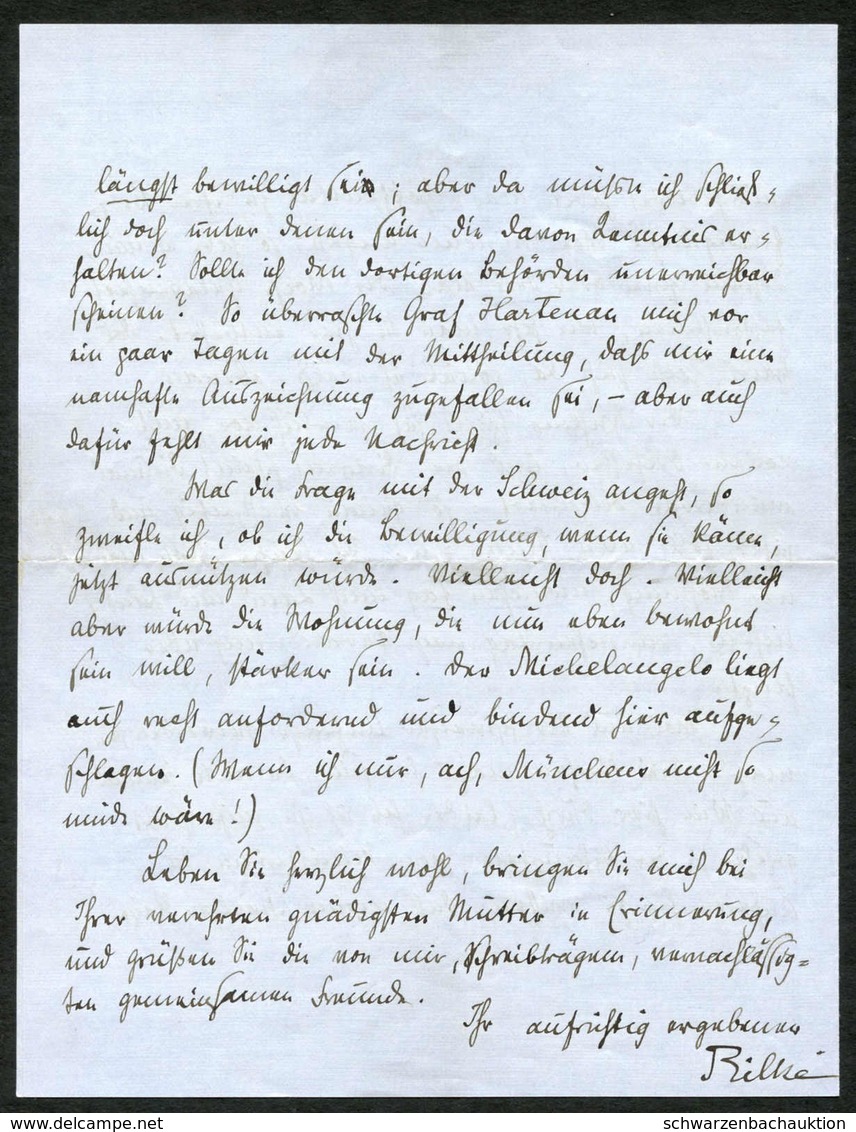 längst bewilligt sein; aber da müßte ich schließ-
lich doch unter denen sein, die davon Kenntnis er-
halten? Sollte ich den dortigen Behörden unerreichbar
scheinen? So überraschte Graf Hartenau mich vor
ein paar Tagen mit der Mittheilung, daß mir eine
namhafte Auszeichnung zugefallen sei, – aber auch
dafür fehlt mir jede Nachricht.
Was die Frage mit der Schweiz angeht, so
zweifle ich, ob ich die Bewilligung, wenn sie käme,
jetzt ausnützen würde. Vielleicht doch. Vielleicht
aber würde die Wohnung, die nun eben bewohnt
sein will, stärker sein. Der Michelangelo liegt
auch recht anfordernd und bindend hier aufge-
schlagen. (Wenn ich nur, ach, Münchens nicht so
müde wäre!)
Leben Sie herzlich wohl, bringen Sie mich bei
Ihrer verehrten gnädigsten Mutter in Erinnerung,
und grüßen Sie die von mir, Schreibträgem, vernachlässig-
ten gemeinsamen Freunde.
Ihr aufrichtig ergebener
Rilke
delcampe.net
schwarzenbachauktion